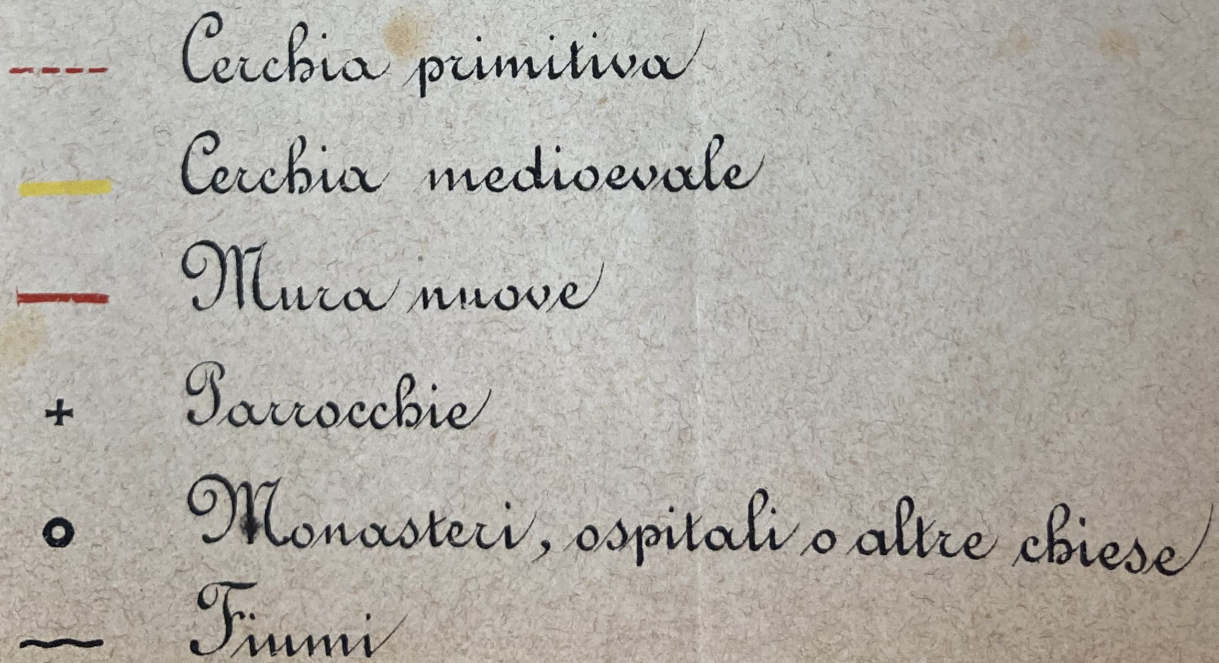 Cerchia primitiva
Cerchia medioevale
Mura nuove
Parrocchie
Monasteri, ospitali o altre chiese
Fiumi